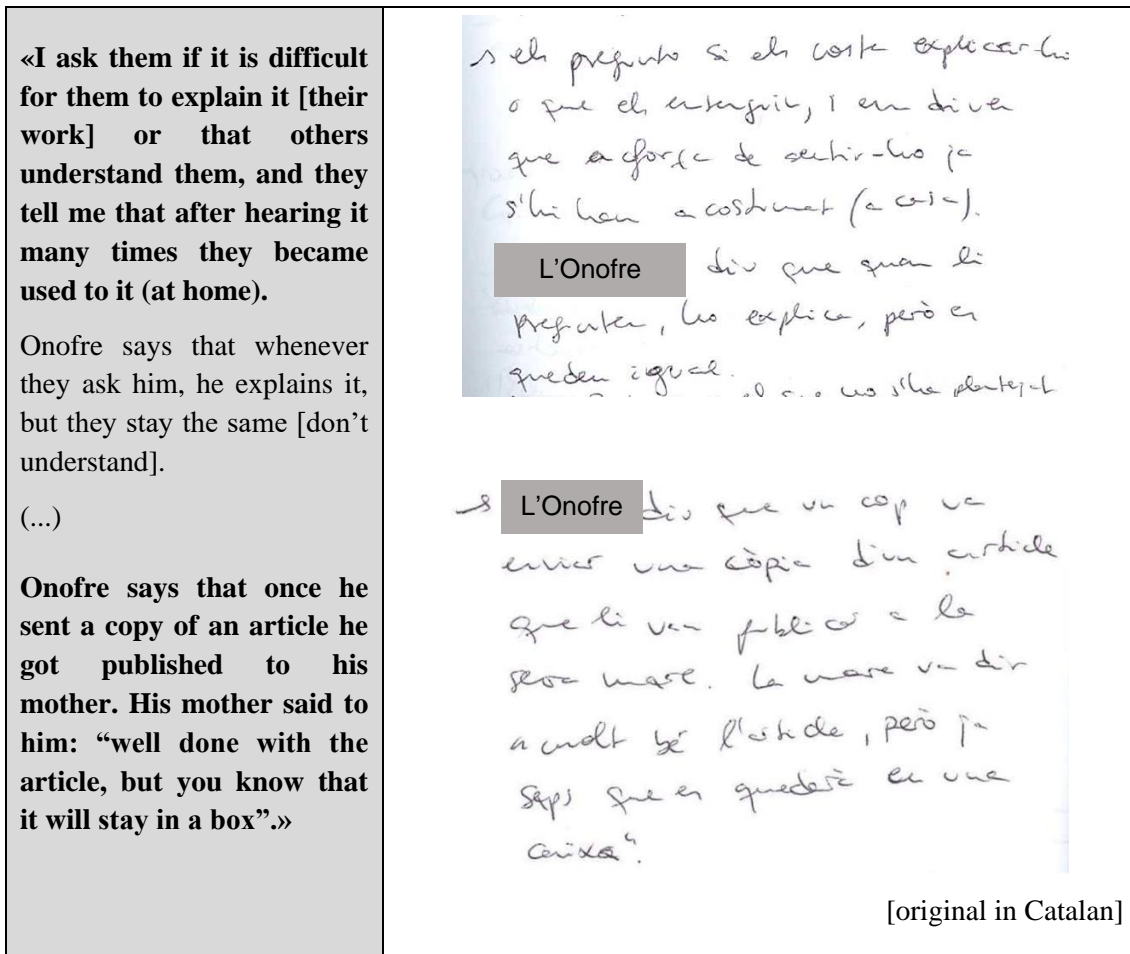 «I ask them if it is difficult
for them to explain it [their
work] or that others
understand them, and they
tell me that after hearing it
many times they became
used to it (at home).
Onofre says that whenever
they ask him, he explains it,
but they stay the same [don’t
understand].
(...)
Onofre says that once he
sent a copy of an article he
got published to his
mother. His mother said to
him: “well done with the
article, but you know that
it will stay in a box”.»
els pregunto si els costa explicar-ho
o que els entenguin, i em diuen
que a força de sentir-ho ja
s'hi han acostumat (a casa).
L’Onofre diu que quan li
pregunten, ho explica, però es
queden igual.
el que no s'ha plantejat
L’Onofre diu que un cop va
enviar una còpia d'un article
que li van publicar a la
seva mare. La mare va dir
molt bé l'article, però ja
saps que es quedarà en una
caixa".
[original in Catalan]